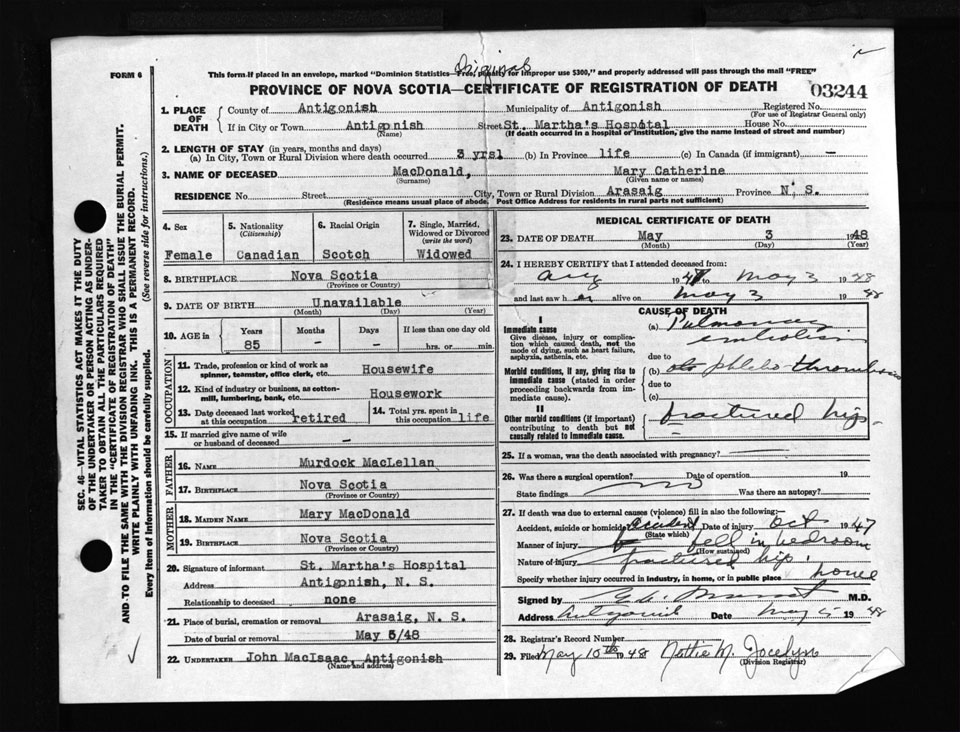 Original
FORM 6
This form if placed in an envelope, marked "Dominion Statistics—Free, penalty for improper use $300," and properly addressed will pass through the mail "FREE"
PROVINCE OF NOVA SCOTIA—CERTIFICATE OF REGISTRATION OF DEATH
03244
1. PLACE OF DEATH
County of Antigonish Municipality of Antigonish Registered No.
(For use of Registrar General only)
If in City or Town Antigonish Street St. Martha's Hospital House No.
(Name) (If death occurred in a hospital or institution, give the name instead of street and number)
2. LENGTH OF STAY (in years, months and days)
(a) In City, Town or Rural Division where death occurred 3 yrs. (b) In Province life (c) In Canada (if immigrant) —
3. NAME OF DECEASED MacDonald, Mary Catherine
(Surname) (Given name or names)
RESIDENCE No. Street City, Town or Rural Division Arasaig Province N. S.
(Residence means usual place of abode. Post Office Address for residents in rural parts not sufficient)
4. Sex
Female
5. Nationality
(Citizenship)
Canadian
6. Racial Origin
Scotch
7. Single, Married, Widowed or Divorced
(write the word)
Widowed
8. BIRTHPLACE Nova Scotia
(Province or Country)
9. DATE OF BIRTH Unavailable
(Month) (Day) (Year)
10. AGE in Years Months Days If less than one day old
85 — — hrs. or min.
OCCUPATION
11. Trade, profession or kind of work as spinner, teamster, office clerk, etc. Housewife
12. Kind of industry or business, as cotton-mill, lumbering, bank, etc. Housework
13. Date deceased last worked at this occupation retired
14. Total yrs. spent in this occupation life
15. If married give name of wife or husband of deceased —
FATHER
16. NAME Murdock MacLellan
17. BIRTHPLACE Nova Scotia
(Province or Country)
MOTHER
18. MAIDEN NAME Mary MacDonald
19. BIRTHPLACE Nova Scotia
(Province or Country)
20. Signature of informant St. Martha's Hospital
Address Antigonish, N. S.
Relationship to deceased none
21. Place of burial, cremation or removal Arasaig, N. S.
Date of burial or removal May 5/48
22. UNDERTAKER John MacIsaac, Antigonish
(Name and address)
MEDICAL CERTIFICATE OF DEATH
23. DATE OF DEATH May 3 1948
(Month) (Day) (Year)
24. I HEREBY CERTIFY that I attended deceased from:
Aug 1947 to May 3 1948
and last saw her alive on May 3 1948
CAUSE OF DEATH
I
Immediate cause
Give disease, injury or complication which caused death, not the mode of dying, such as heart failure, asphyxia, asthenia, etc.
(a) Pulmonary embolism
due to
Morbid conditions, if any, giving rise to immediate cause (stated in order proceeding backwards from immediate cause).
(b) phlebo-thrombosis
due to
(c)
II
Other morbid conditions (if important) contributing to death but not causally related to immediate cause.
fractured hip
25. If a woman, was the death associated with pregnancy?
26. Was there a surgical operation? Date of operation 19
State findings no Was there an autopsy?
27. If death was due to external causes (violence) fill in also the following:—
Accident, suicide or homicide accident Date of injury Oct 1947
(State which)
Manner of injury fell in bedroom
(How sustained)
Nature of injury fractured hip
Specify whether injury occurred in industry, in home, or in public place home
Signed by M.D.
Address Antigonish Date May 5 1948
28. Registrar's Record Number
29. Filed May 10th 1948 Nettie M. Jocelyn
(Division Registrar)
SEC. 46—VITAL STATISTICS ACT MAKES IT THE DUTY
OF THE UNDERTAKER OR PERSON ACTING AS UNDER-
TAKER TO OBTAIN ALL THE PARTICULARS REQUIRED
IN THE "CERTIFICATE OF REGISTRATION OF DEATH"
AND TO FILE THE SAME WITH THE DIVISION REGISTRAR WHO SHALL ISSUE THE BURIAL PERMIT.
WRITE PLAINLY WITH UNFADING INK. THIS IS A PERMANENT RECORD.
Every item of information should be carefully supplied. (See reverse side for instructions.)